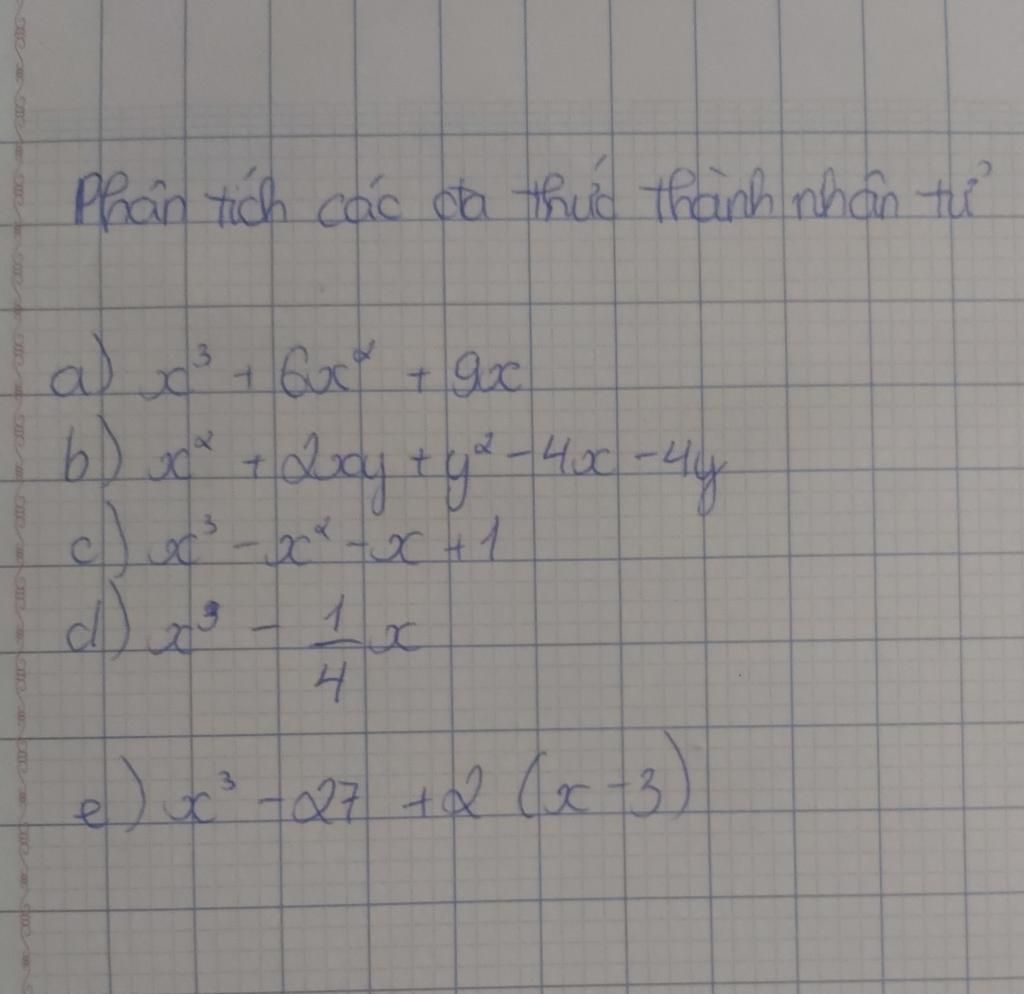 Phân tích các đa thức thành nhân tử
a) x³ + 6x² + 9x
b) x² + 2xy + y² - 4x - 4y
c) x³ - x² - x + 1
d) x³ - 1/4 x
e) x³ - 27 + 2 (x - 3)